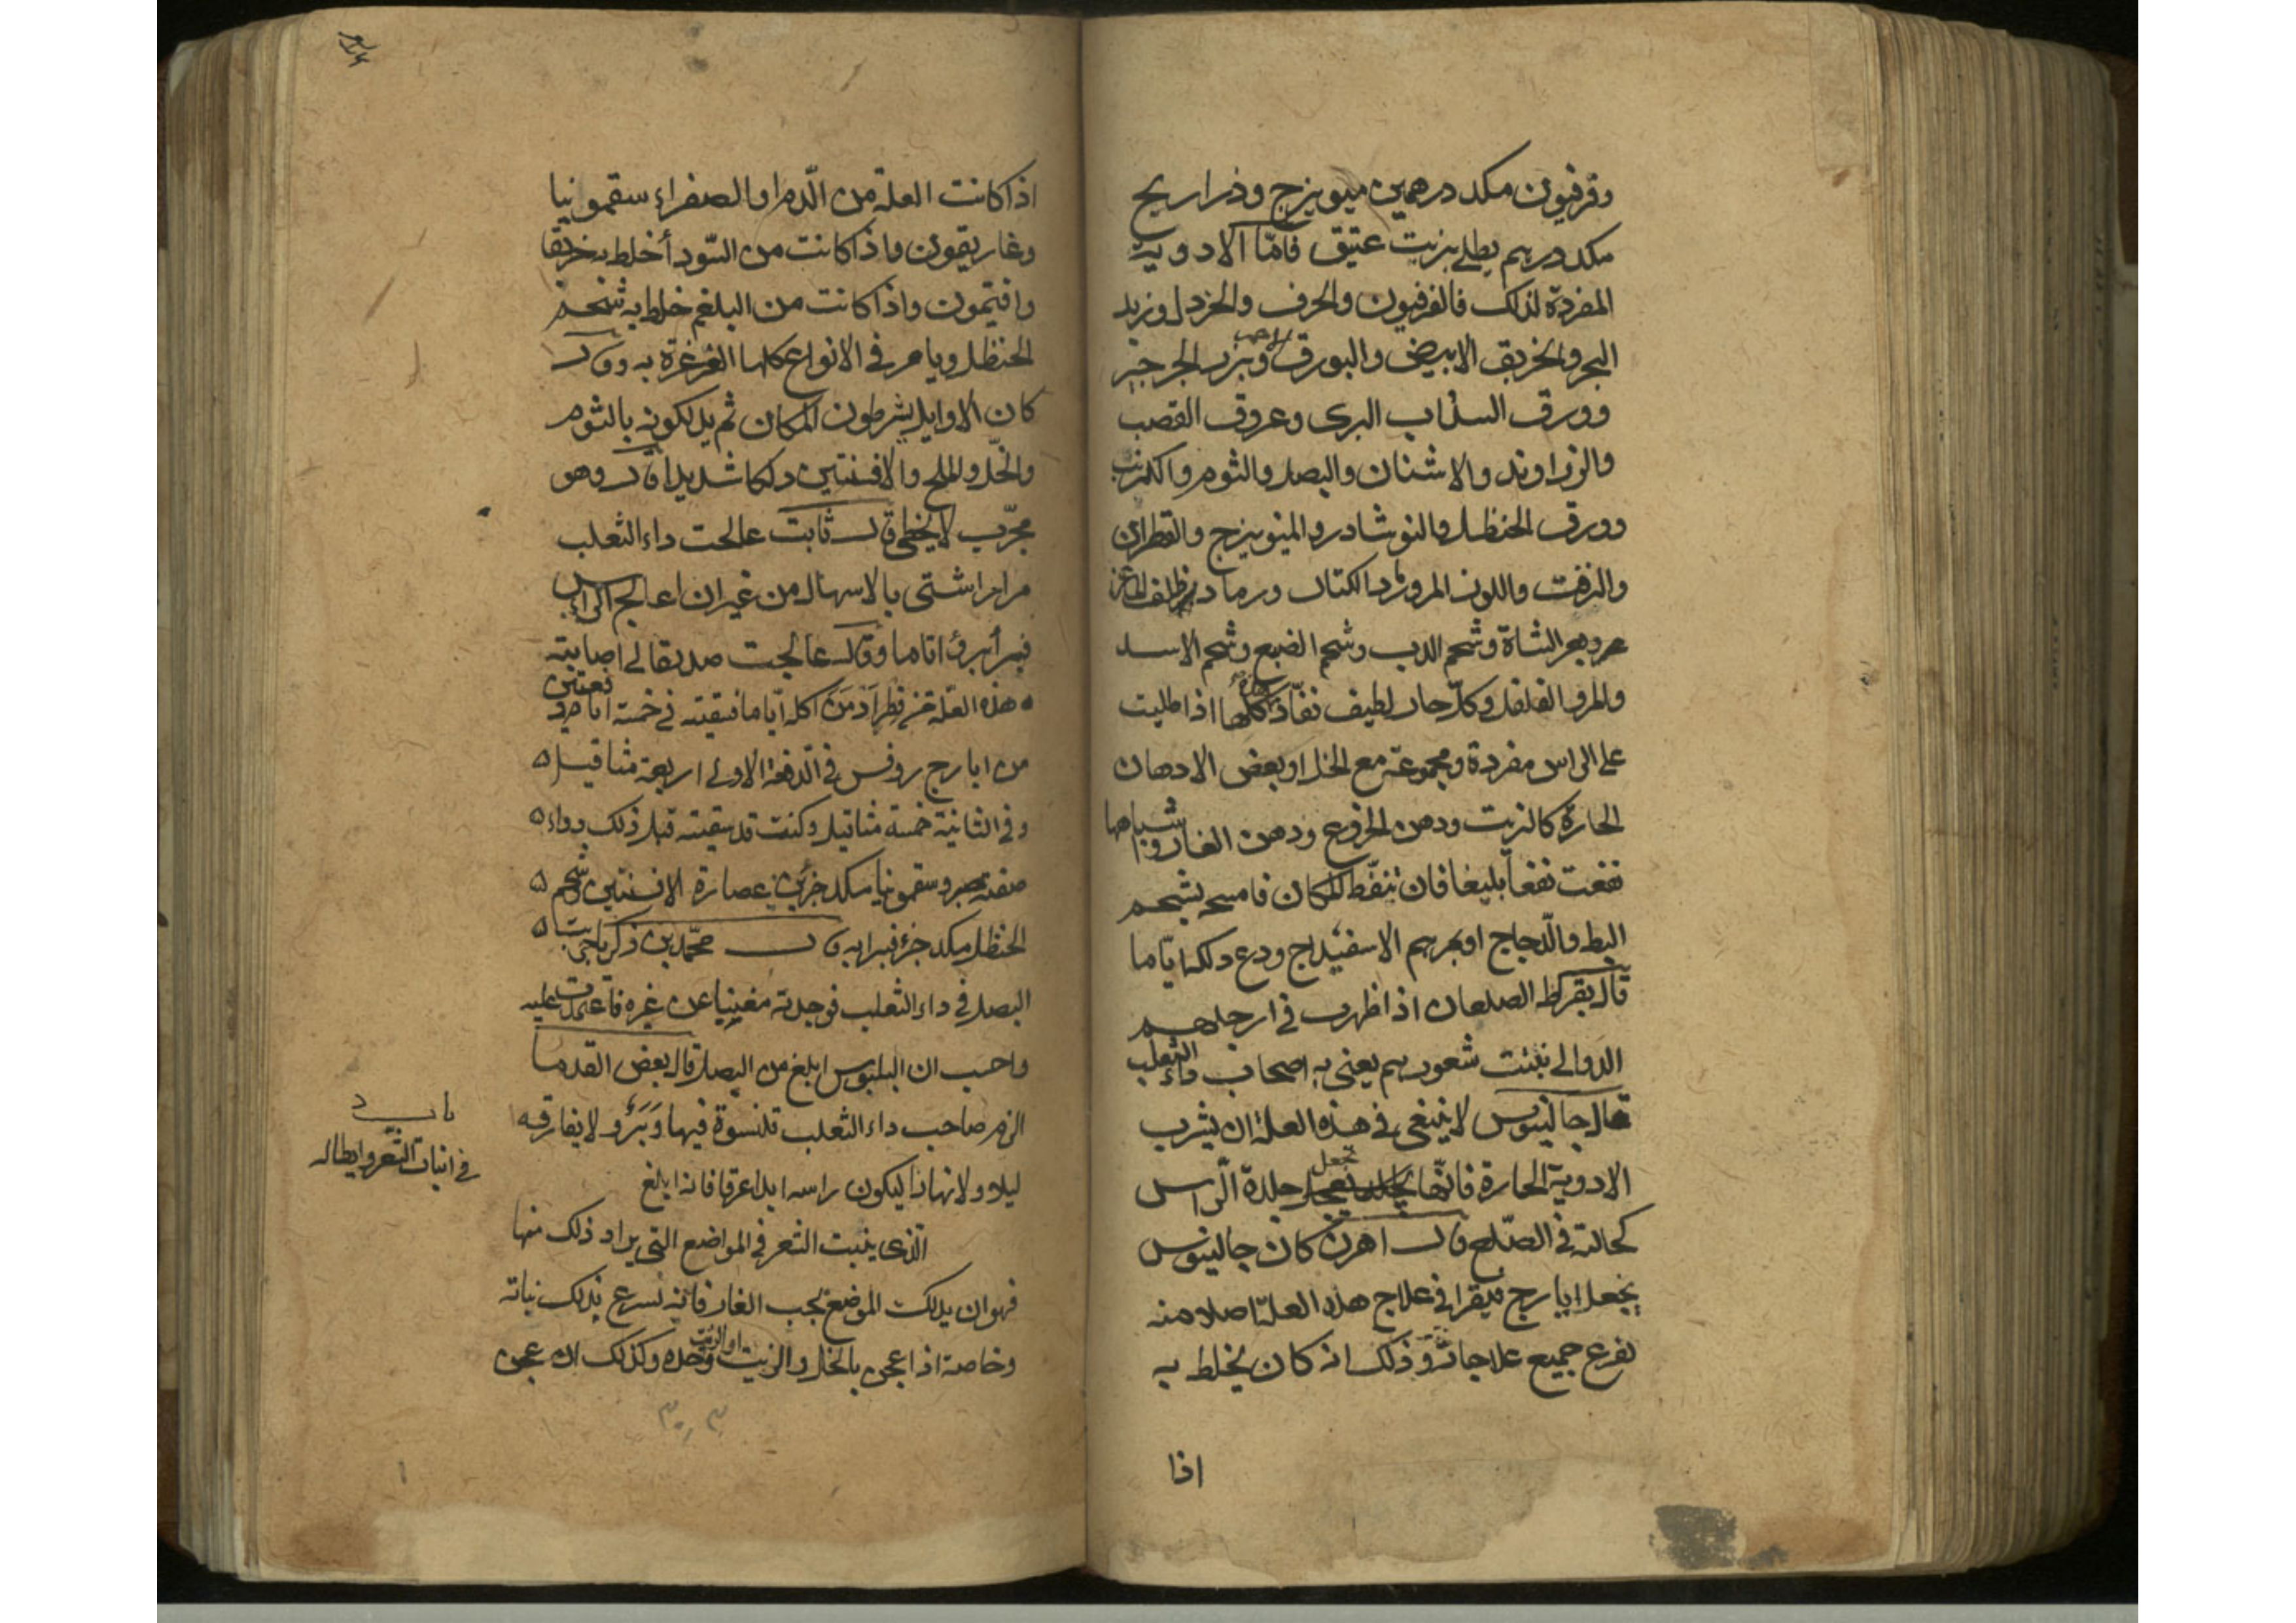 وفرفيون مكد درهمين ميويزج وذراريح
مكد درهم يطلى بزيت عتيق فامّا الادوية
المفردة لذلك فالفرفيون والحرف والخردل وزبد
البحر والخربق الابيض والبورق وبزر الجرجير
وورق السذاب البرى وعروق القصب
والزراوند والاشنان والبصل والثوم والكرنب
وورق الحنظل والنوشادر والميويزج والقطران
والزفت واللوز المر ورماد ظلف الماعز
وبعر الشاة وشحم الدب وشحم الضبع وشحم الاسد
والمر والفلفل وكلّ حار لطيف نفّاذ كلّها اذا طليت
على الراس مفردة ومجموعة مع الخل او بعض الادهان
الحارة كالزيت ودهن الخروع ودهن الغار واشباهها
نفعت نفعاً بليغا فان تنفّط المكان فامسحه بشحم
البط والدّجاج او بمرهم الاسفيداج ودع دلكه ايّاما
قال بقراط الصلعان اذا ظهرت في ارجلهم
الدوالى نبتت شعورهم يعنى به اصحاب داء الثعلب
قال جالينوس لا ينبغى في هذه العلة ان يشرب
الادوية الحارة فانّها تجعل جلدة الرّاس
كحالته في الصّلع قال اهرن كان جالينوس
يجعل ايارج فيقرا في علاج هذه العلّة اصلا منه
يفرع جميع علاجاته وذلك انه كان يخلط به
اذا
اذا كانت العلة من الّدم او الصفراء سقمونيا
وغاريقون واذا كانت من السّوداء خلط به خربقا
وافتيمون واذا كانت من البلغم خلط به شحم
الحنظل ويامر في الانواع كلها الغرغرة به وقال
كان الاوايل يشرطون المكان ثم يدلكونه بالثوم
والخلّ والملح والافسنتين دلكا شديدا قال وهو
مجرّب لا يخطى قال ثابت عالجت داء الثعلب
مرارا شتى بالاسهال من غير ان اعالج الراس
فبرأ برؤا تاما وقال عالجت صديقا لى اصابته
هذه العلّة من فطر ادمن اكله ايّاما فسقيته في خمسة ايام دفعتين
من ايارج روفس في الّدفعة الاولى اربعة مثاقيل
وفي الثانية خمسة مثاقيل وكنت قد سقيته قبل ذلك دواء
صفته صبر وسقمونيا مكد جزئين عصارة الافسنتين وشحم
الحنظل مكد جزء فبرا به قال محمّد بن زكريا جربت
البصل في داء الثعلب فوجدته مغنيا عن غيره فاعتمدت عليه
واحسب ان البلبوس ابلغ من البصل قال بعض القدما
الزم صاحب داء الثعلب قلنسوة فيها وَبَر ولا يفارقه
ليلا ولا نهارا ليكون راسه ابدا عرقا فانه ابلغ
باب
في انبات الشعر وابطاله
الّذى ينبت الشعر في المواضع التى يراد ذلك منها
فهو ان يدلك الموضع بحب الغار فانه يسرع بذلك نباته
وخاصة اذا عجن بالخل والزيت او الزيت وحده وكذلك ان عجن